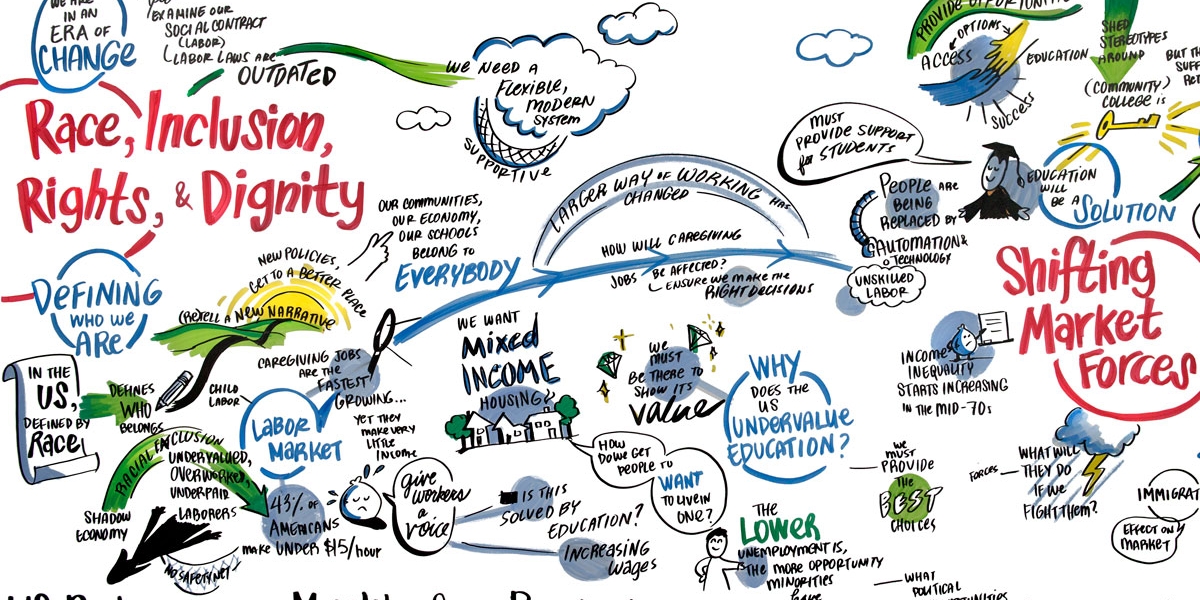 WE ARE
IN AN
ERA OF
CHANGE
EXAMINE OUR
SOCIAL CONTRACT
(LABOR)
LABOR LAWS ARE
OUTDATED
WE NEED A
FLEXIBLE,
MODERN
SYSTEM
SUPPORTIVE
Race, Inclusion,
Rights, & Dignity
DEFINING
WHO WE
ARE
NEW POLICIES,
GET TO A BETTER PLACE
(RE)TELL A NEW NARRATIVE
OUR COMMUNITIES,
OUR ECONOMY,
OUR SCHOOLS
BELONG TO
EVERYBODY
LARGER WAY OF WORKING HAS
CHANGED
HOW WILL CAREGIVING
JOBS BE AFFECTED?
ENSURE WE MAKE THE
RIGHT DECISIONS
MUST
PROVIDE SUPPORT
for STUDENTS
PROVIDE OPPORTUNITIES
OPTIONS
ACCESS
EDUCATION
SUCCESS
SHED
STEREOTYPES
AROUND
(COMMUNITY)
COLLEGE IS
BUT
PEOPLE ARE
BEING
REPLACED BY
AUTOMATION &
TECHNOLOGY
UNSKILLED
LABOR
EDUCATION
WILL
BE A SOLUTION
Shifting
Market
Forces
INCOME
INEQUALITY
STARTS INCREASING
IN THE MID-70s
IN THE
US,
DEFINED BY
RACE!
DEFINES
WHO
BELONGS
CHILD
LABOR
LABOR
MARKET
CAREGIVING JOBS
ARE THE
FASTEST
GROWING...
YET THEY
MAKE VERY
LITTLE
INCOME
RACIAL EXCLUSION
UNDERVALUED,
OVERWORKED,
UNDERPAID
LABORERS
SHADOW
ECONOMY
NO SAFETY NET
43% OF
AMERICANS
MAKE UNDER $15/hour
give
workers
a
voice
IS THIS
SOLVED BY
EDUCATION?
INCREASING
Wages
WE WANT
Mixed
INCOME
HOUSING
HOW
DO WE GET
PEOPLE TO
WANT
TO LIVE IN
ONE?
WE
MUST
BE THERE TO
SHOW ITS
value
WHY
DOES THE
US
UNDERVALUE
EDUCATION?
WE
MUST
PROVIDE
THE
BEST
CHOICES
THE
LOWER
UNEMPLOYMENT IS,
THE MORE OPPORTUNITY
MINORITIES
have
WHAT
POLITICAL
FORCES
WHAT WILL
THEY DO
IF WE
FIGHT THEM?
EFFECT ON
MARKET